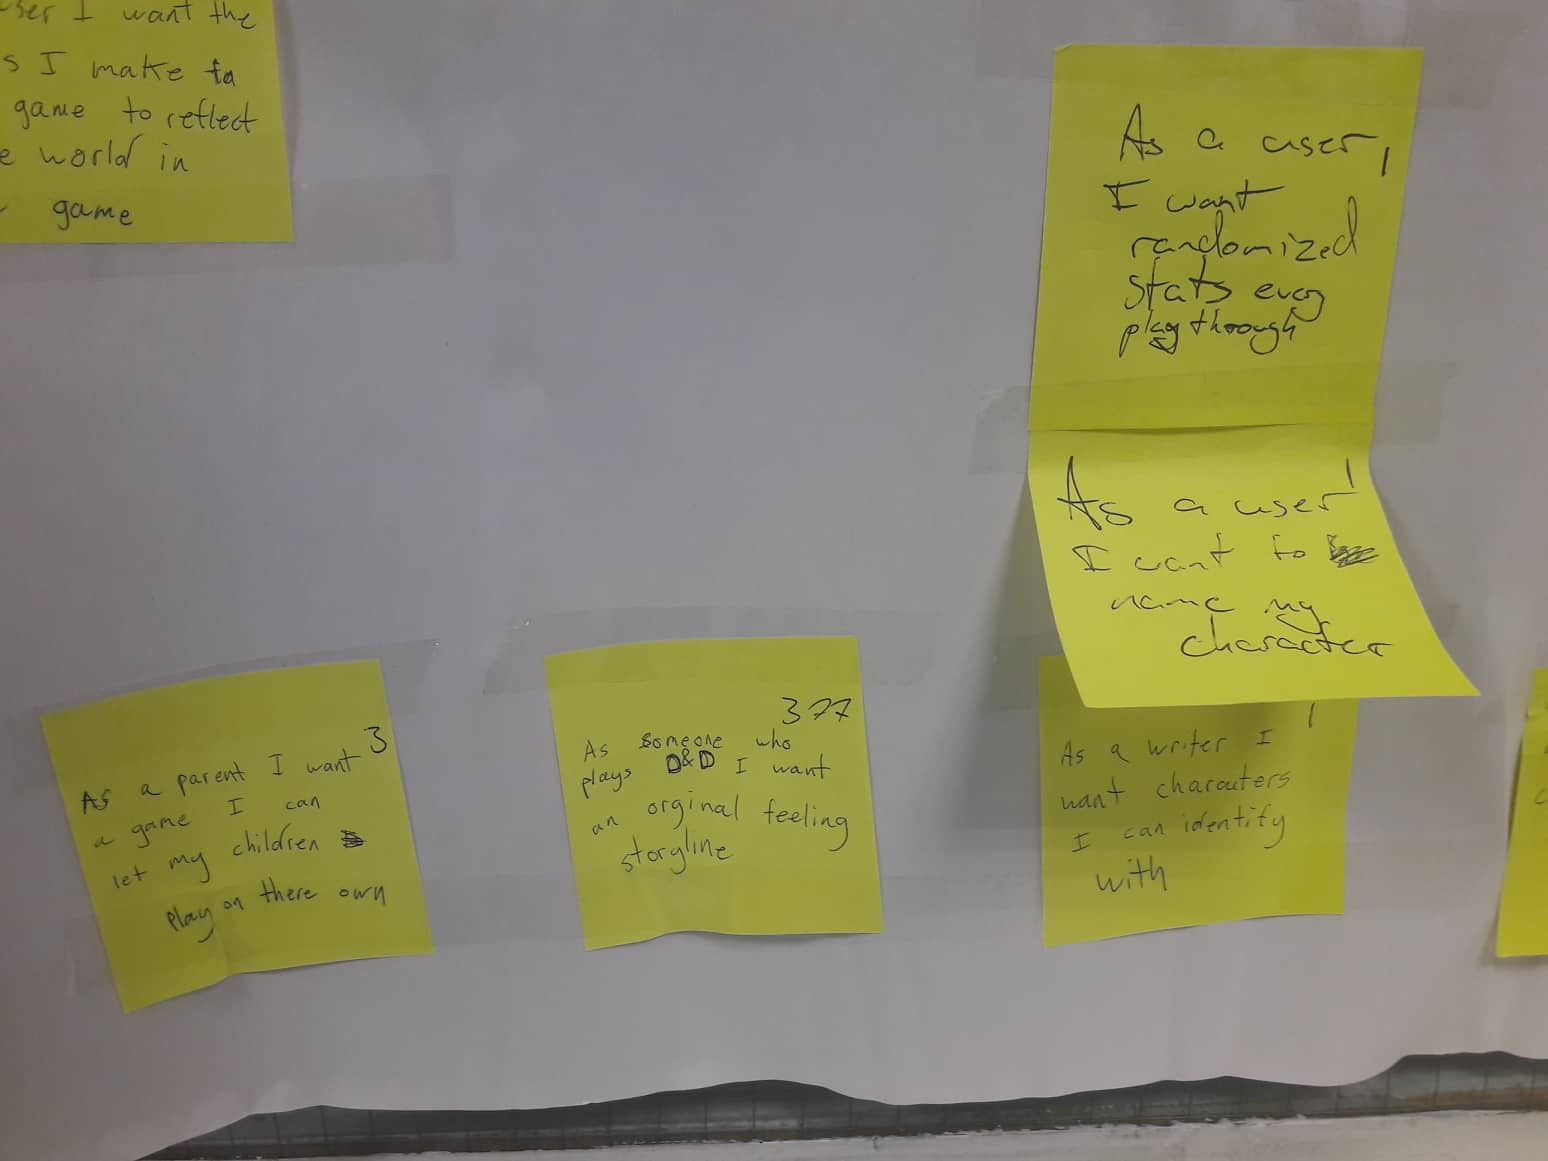 user I want the
s I make to
game to reflect
e world in
game
As a user, 1
I want
randomized
stats every
playthrough
As a user 1
I want to
name my
character
3
As a parent I want
a game I can
let my children
play on there own
377
As someone who
plays D&D I want
an orginal feeling
storyline
1
As a writer I
want charaters
I can identify
with